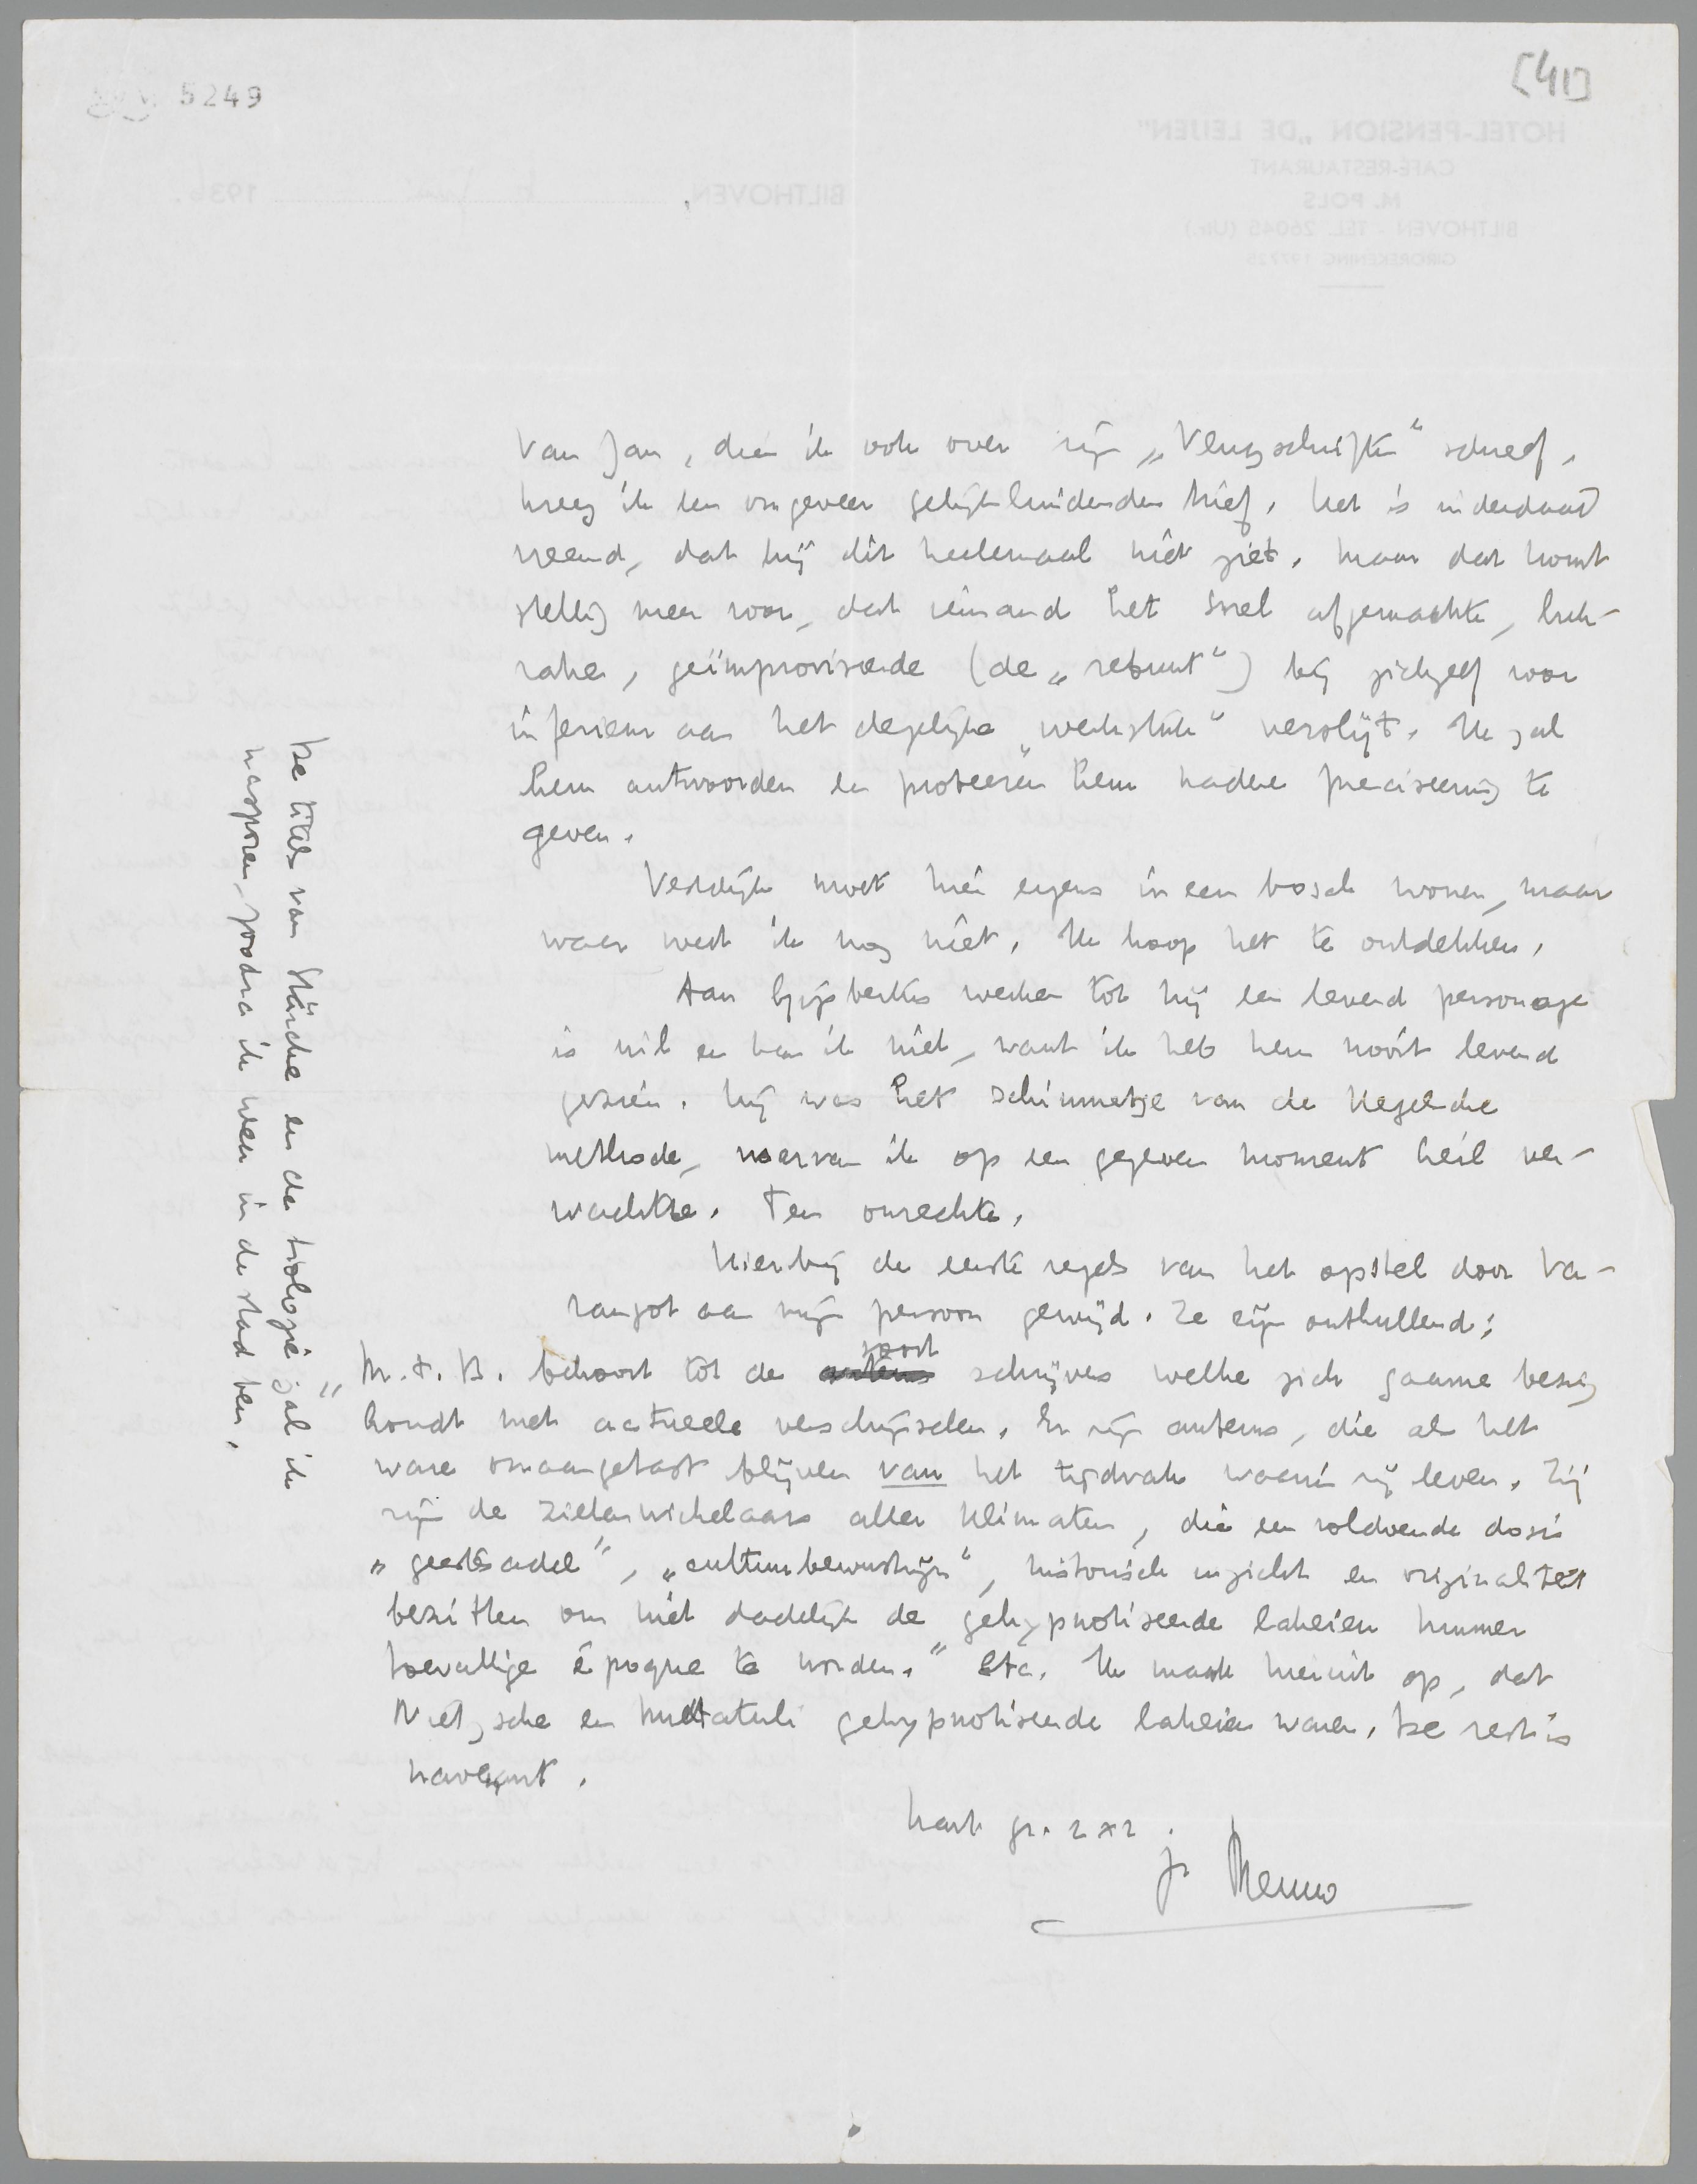 5249
[41]
Van Jan, dien ik ook over zijn „Vlugschriften" schreef,
kreeg ik een ongeveer gelijkluidenden brief. Het is inderdaad
vreemd, dat hij dit heelemaal niet ziet. Maar dat komt
stellig meer voor, dat iemand het snel afgemaakte, luk-
rake, geïmproviseerde (de „rebunt") bij zichzelf voor
inferieur aan het degelijke „werkstuk" verslijt. Ik zal
hem antwoorden en probeeren hem nadere preciseering te
geven.
Vestdijk moet hier ergens in een bosch wonen, maar
waar weet ik nog niet. Ik hoop het te ontdekken.
Aan Gijsbertus werken tot hij een levend personage
is wil en kan ik niet, want ik heb hem nooit levend
gezien. Hij was het schimmetje van de Hegelsche
methode, waarvan ik op een gegeven moment heil ver-
wachtte. Ten onrechte.
Hierbij de eerste regels van het opstel door Va-
rangot aan mijn persoon gewijd. Ze zijn onthullend:
„M. t. B. behoort tot de soort schrijvers welke zich gaarne bezig
houdt met actueele verschijnselen. Er zijn auteurs, die als het
ware onaangetast blijven van het tijdvak waarin zij leven. Zij
zijn de zielenwichelaars aller klimaten, die een voldoende dosis
„geestesadel", „cultuurbewustzijn", historisch inzicht en originaliteit
bezitten om niet dadelijk de gehypnotiseerde lakeien hunner
toevallige époque te worden." Etc. Ik maak hieruit op, dat
Nietzsche en Multatuli gehypnotiseerde lakeien waren. De rest is
navenant.
hart. gr. 2 x 2.
je Menno
De titels van Stärcke en de trilogie zal ik
naspooren, zoodra ik weer in de stad ben.
HOTEL-PENSION „DE LEIJEN"
CAFÉ-RESTAURANT
M. POLS
BILTHOVEN - TEL. 26045 (Utr.)
GIROREKENING 197725
BILTHOVEN, 1936.